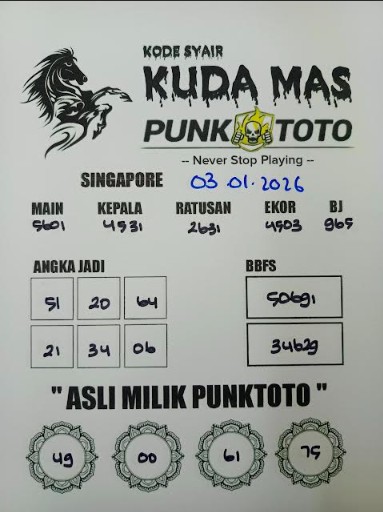 KODE SYAIR
KUDA MAS
PUNK TOTO
-- Never Stop Playing --
SINGAPORE 03.01.2026
MAIN KEPALA RATUSAN EKOR BJ
5601 4531 2631 4503 965
ANGKA JADI BBFS
51 20 64 50691
21 34 06 34629
" ASLI MILIK PUNKTOTO "
49 00 61 75